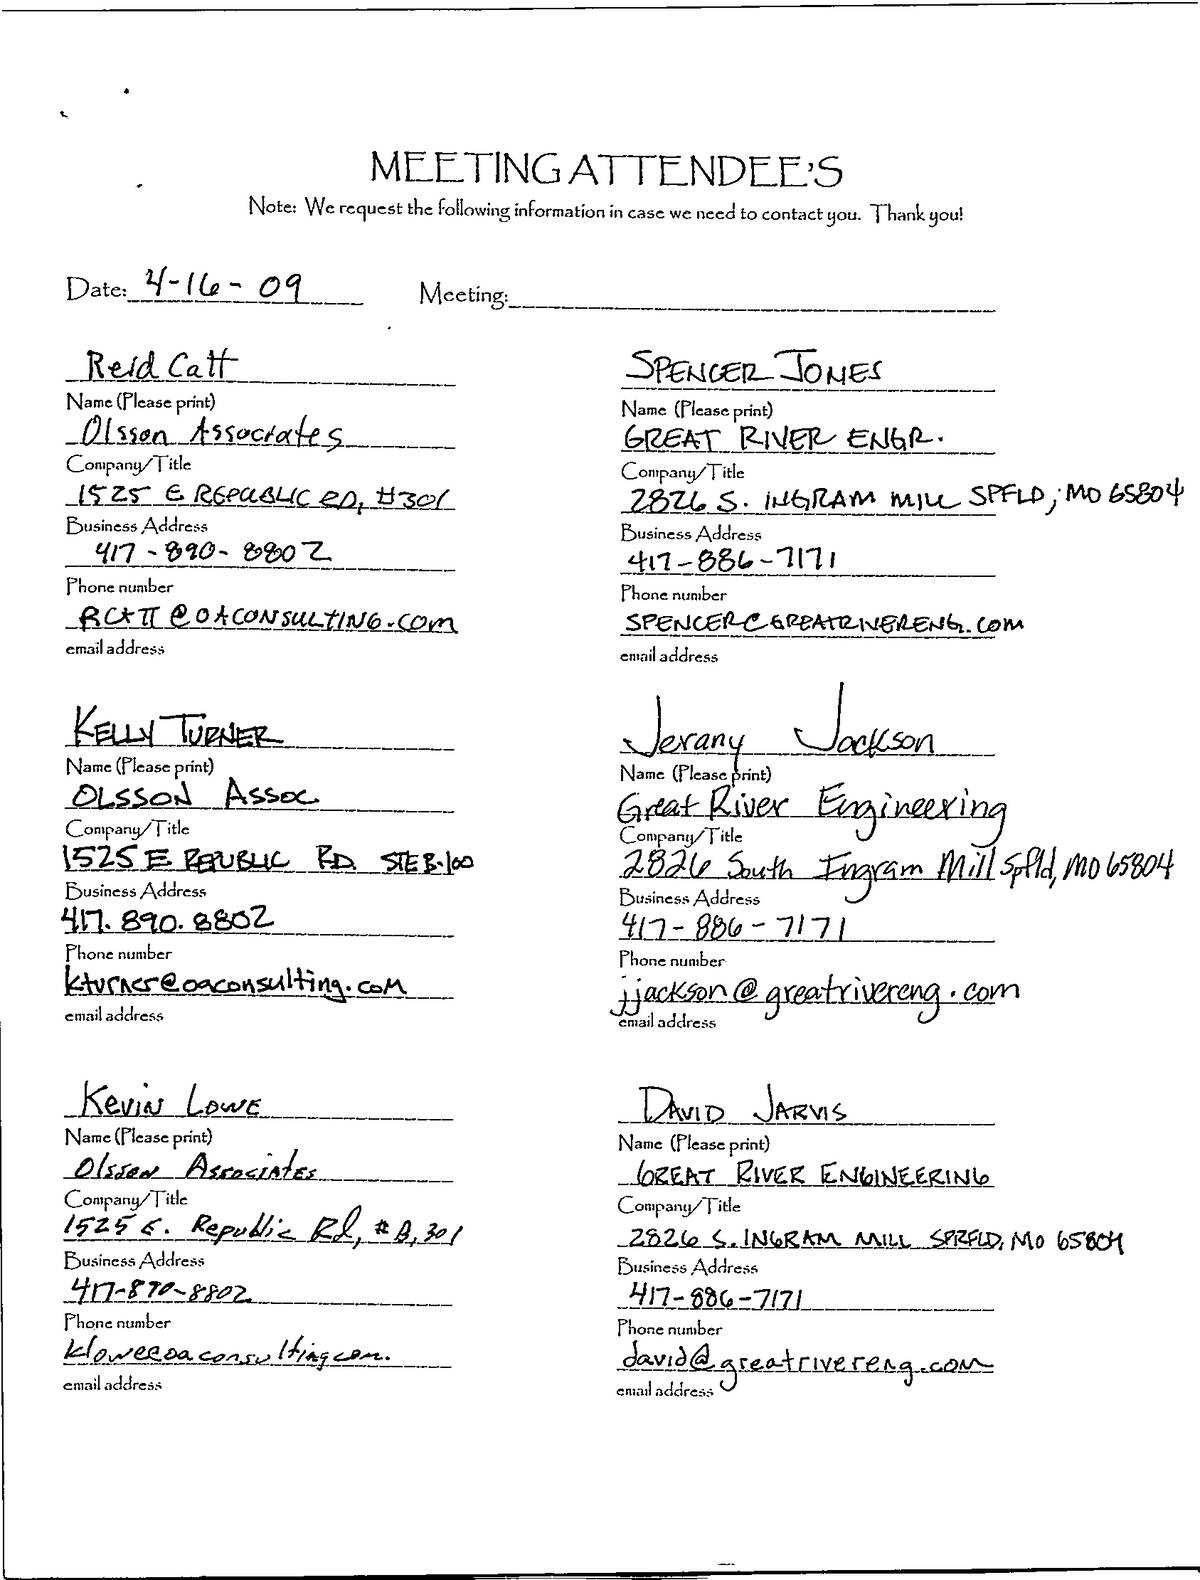 MEETING ATTENDEE'S
Note: We request the following information in case we need to contact you. Thank you!
Date: 4-16-09 Meeting:
Reid Catt
Name (Please print)
Olsson Associates
Company/Title
1525 E REPUBLIC RD, #301
Business Address
417-890-8802
Phone number
RCATT@OACONSULTING.COM
email address
SPENCER JONES
Name (Please print)
GREAT RIVER ENGR.
Company/Title
2826 S. INGRAM MILL SPFLD, MO 65804
Business Address
417-886-7171
Phone number
SPENCER@GREATRIVERENG.COM
email address
KELLY TURNER
Name (Please print)
OLSSON ASSOC
Company/Title
1525 E REPUBLIC RD. STE B-100
Business Address
417.890.8802
Phone number
kturner@oaconsulting.com
email address
Jerany Jackson
Name (Please print)
Great River Engineering
Company/Title
2826 South Ingram Mill Spfld, MO 65804
Business Address
417-886-7171
Phone number
jjackson@greatrivereng.com
email address
Kevin Lowe
Name (Please print)
Olsson Associates
Company/Title
1525 E. Republic Rd, #B, 301
Business Address
417-890-8802
Phone number
klowe@oaconsulting.com.
email address
DAVID JARVIS
Name (Please print)
GREAT RIVER ENGINEERING
Company/Title
2826 S. INGRAM MILL SPRFLD, MO 65804
Business Address
417-886-7171
Phone number
david@greatrivereng.com
email address